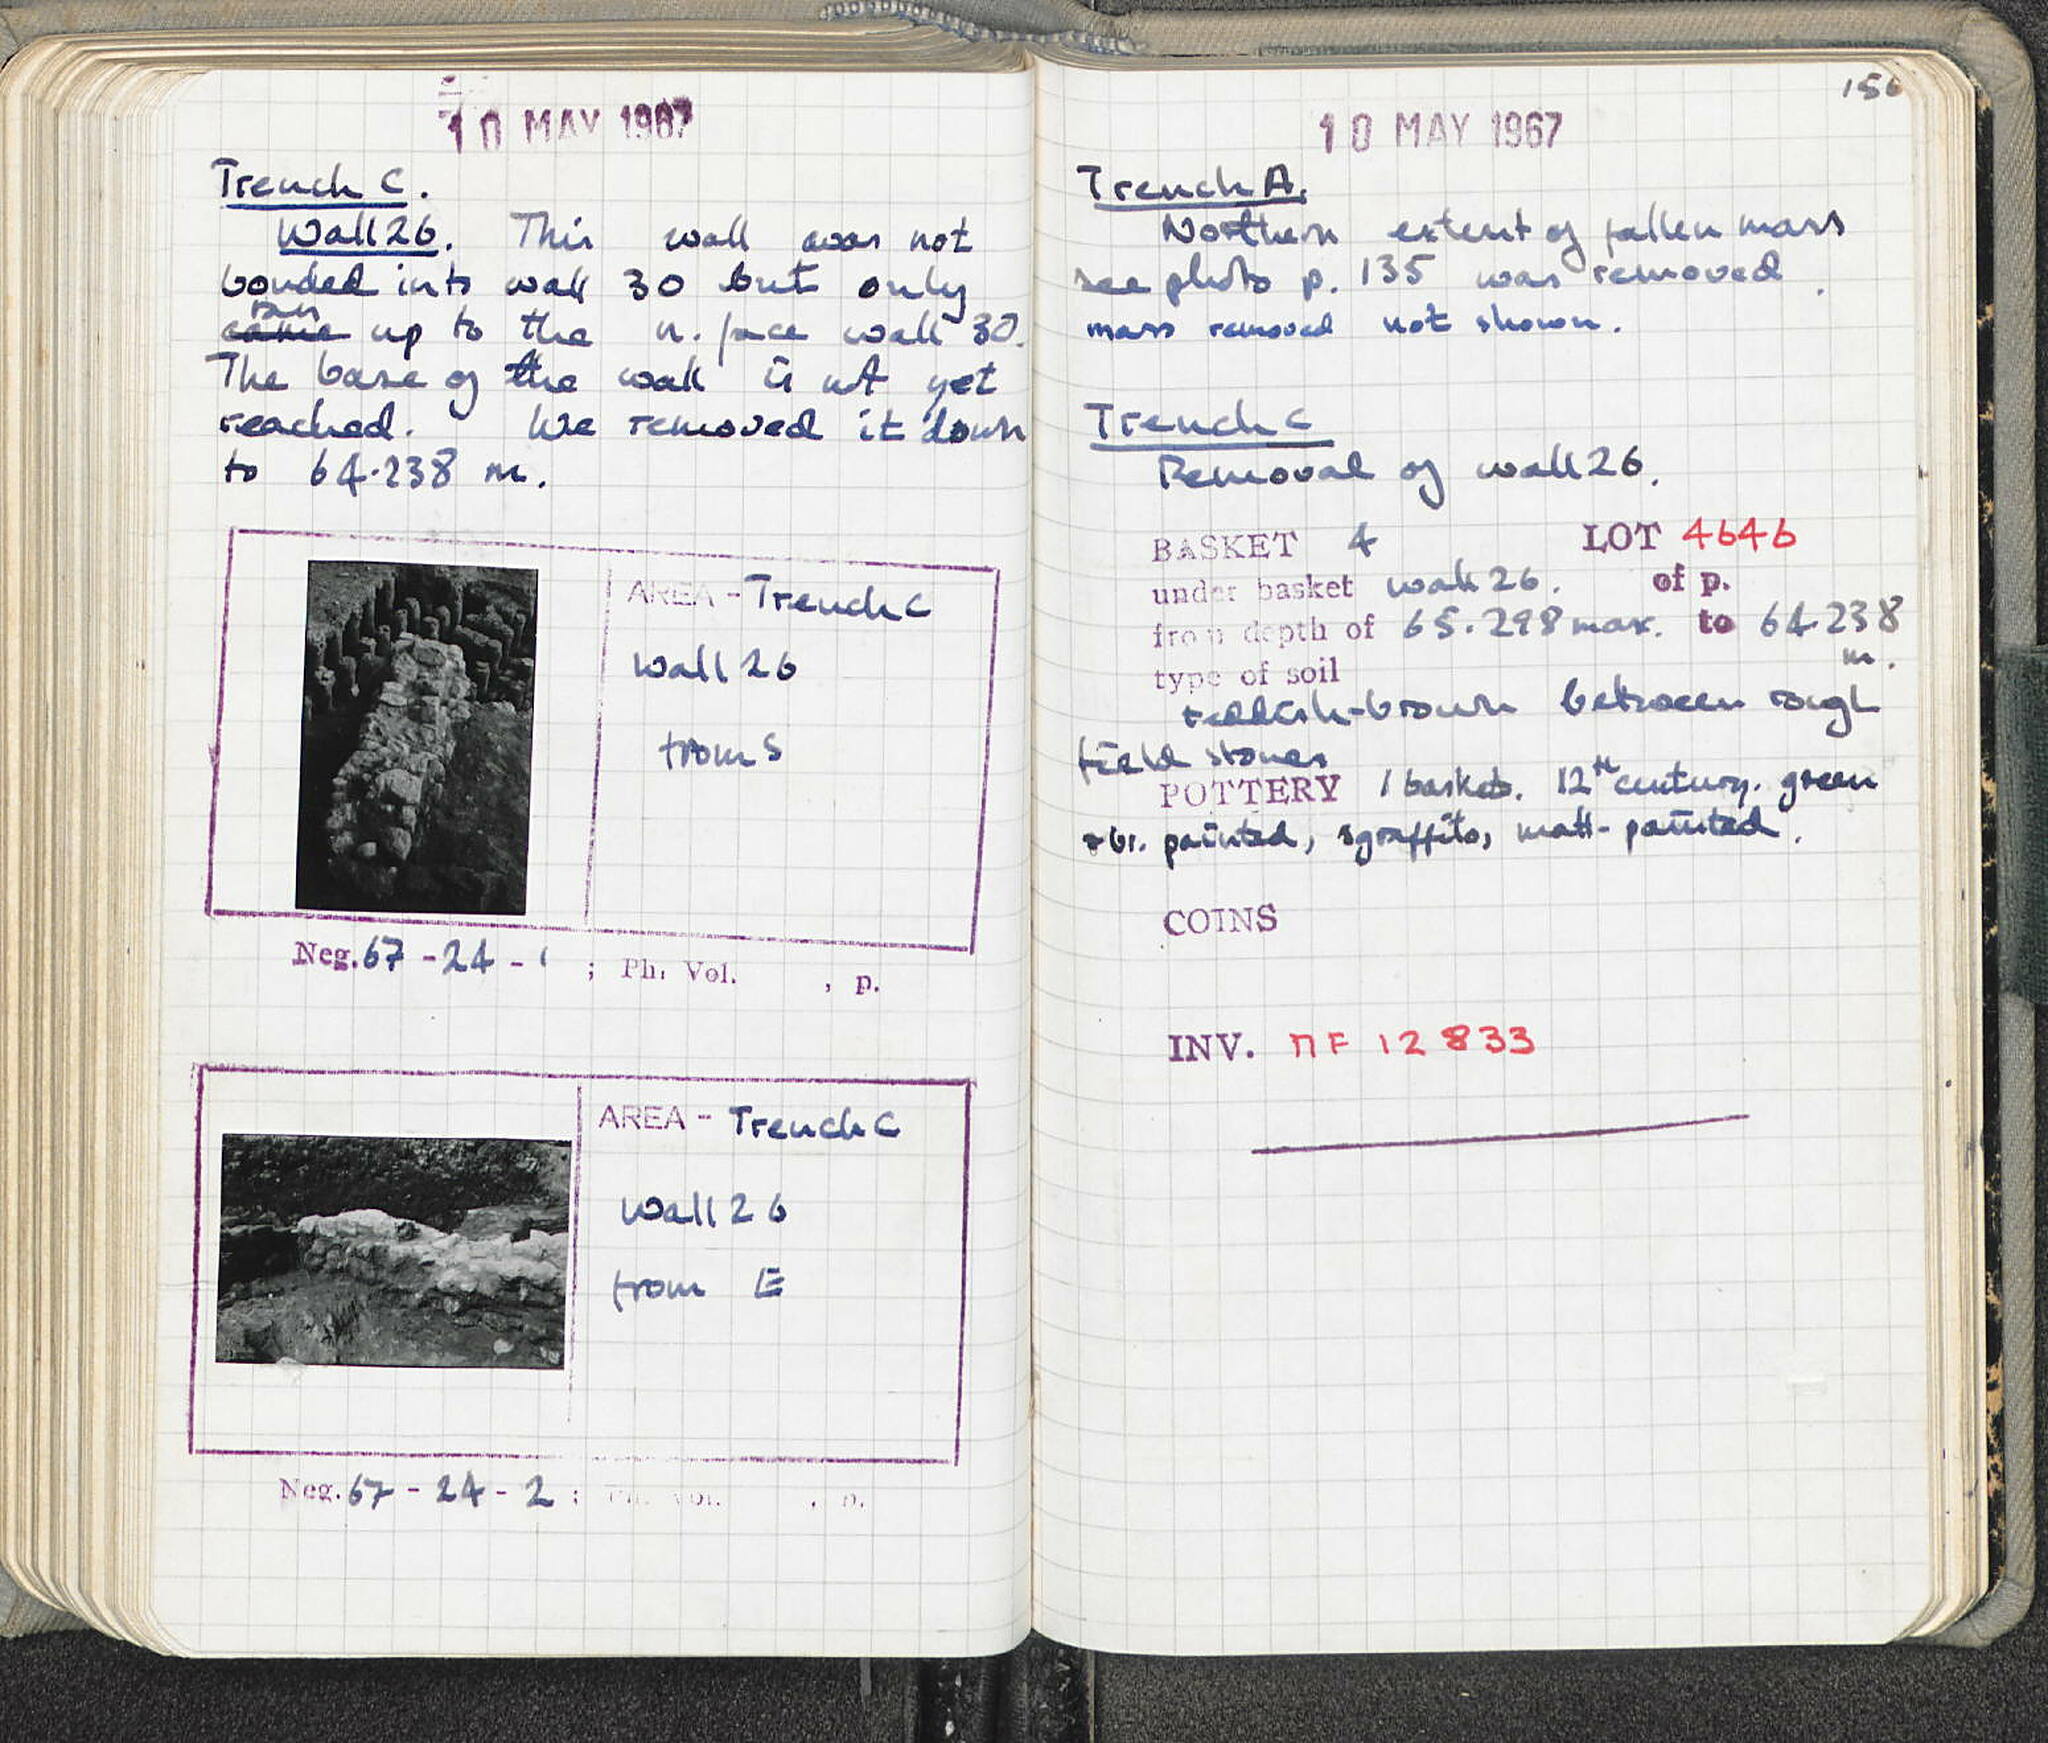 10 MAY 1967
Trench C.
Wall 26. This wall was not
bonded into wall 30 but only
ran
came up to the n. face wall 30.
The base of the wall is not yet
reached. We removed it down
to 64.238 m.
AREA - Trench C
Wall 26
from S
Neg. 67 - 24 - 1 ; Ph. Vol. , p.
AREA - Trench C
Wall 26
from E
Neg. 67 - 24 - 2 ; Ph. Vol. , p.
156
10 MAY 1967
Trench A.
Northern extent of fallen mass
see photo p. 135 was removed.
mass removed not shown.
Trench C
Removal of wall 26.
BASKET 4 LOT 4646
under basket wall 26. of p.
from depth of 65.298 max. to 64.238
m.
type of soil
reddish-brown between rough
field stones
POTTERY 1 basket. 12th century. green
+ br. painted, sgraffito, matt-painted.
COINS
INV. MF 12833